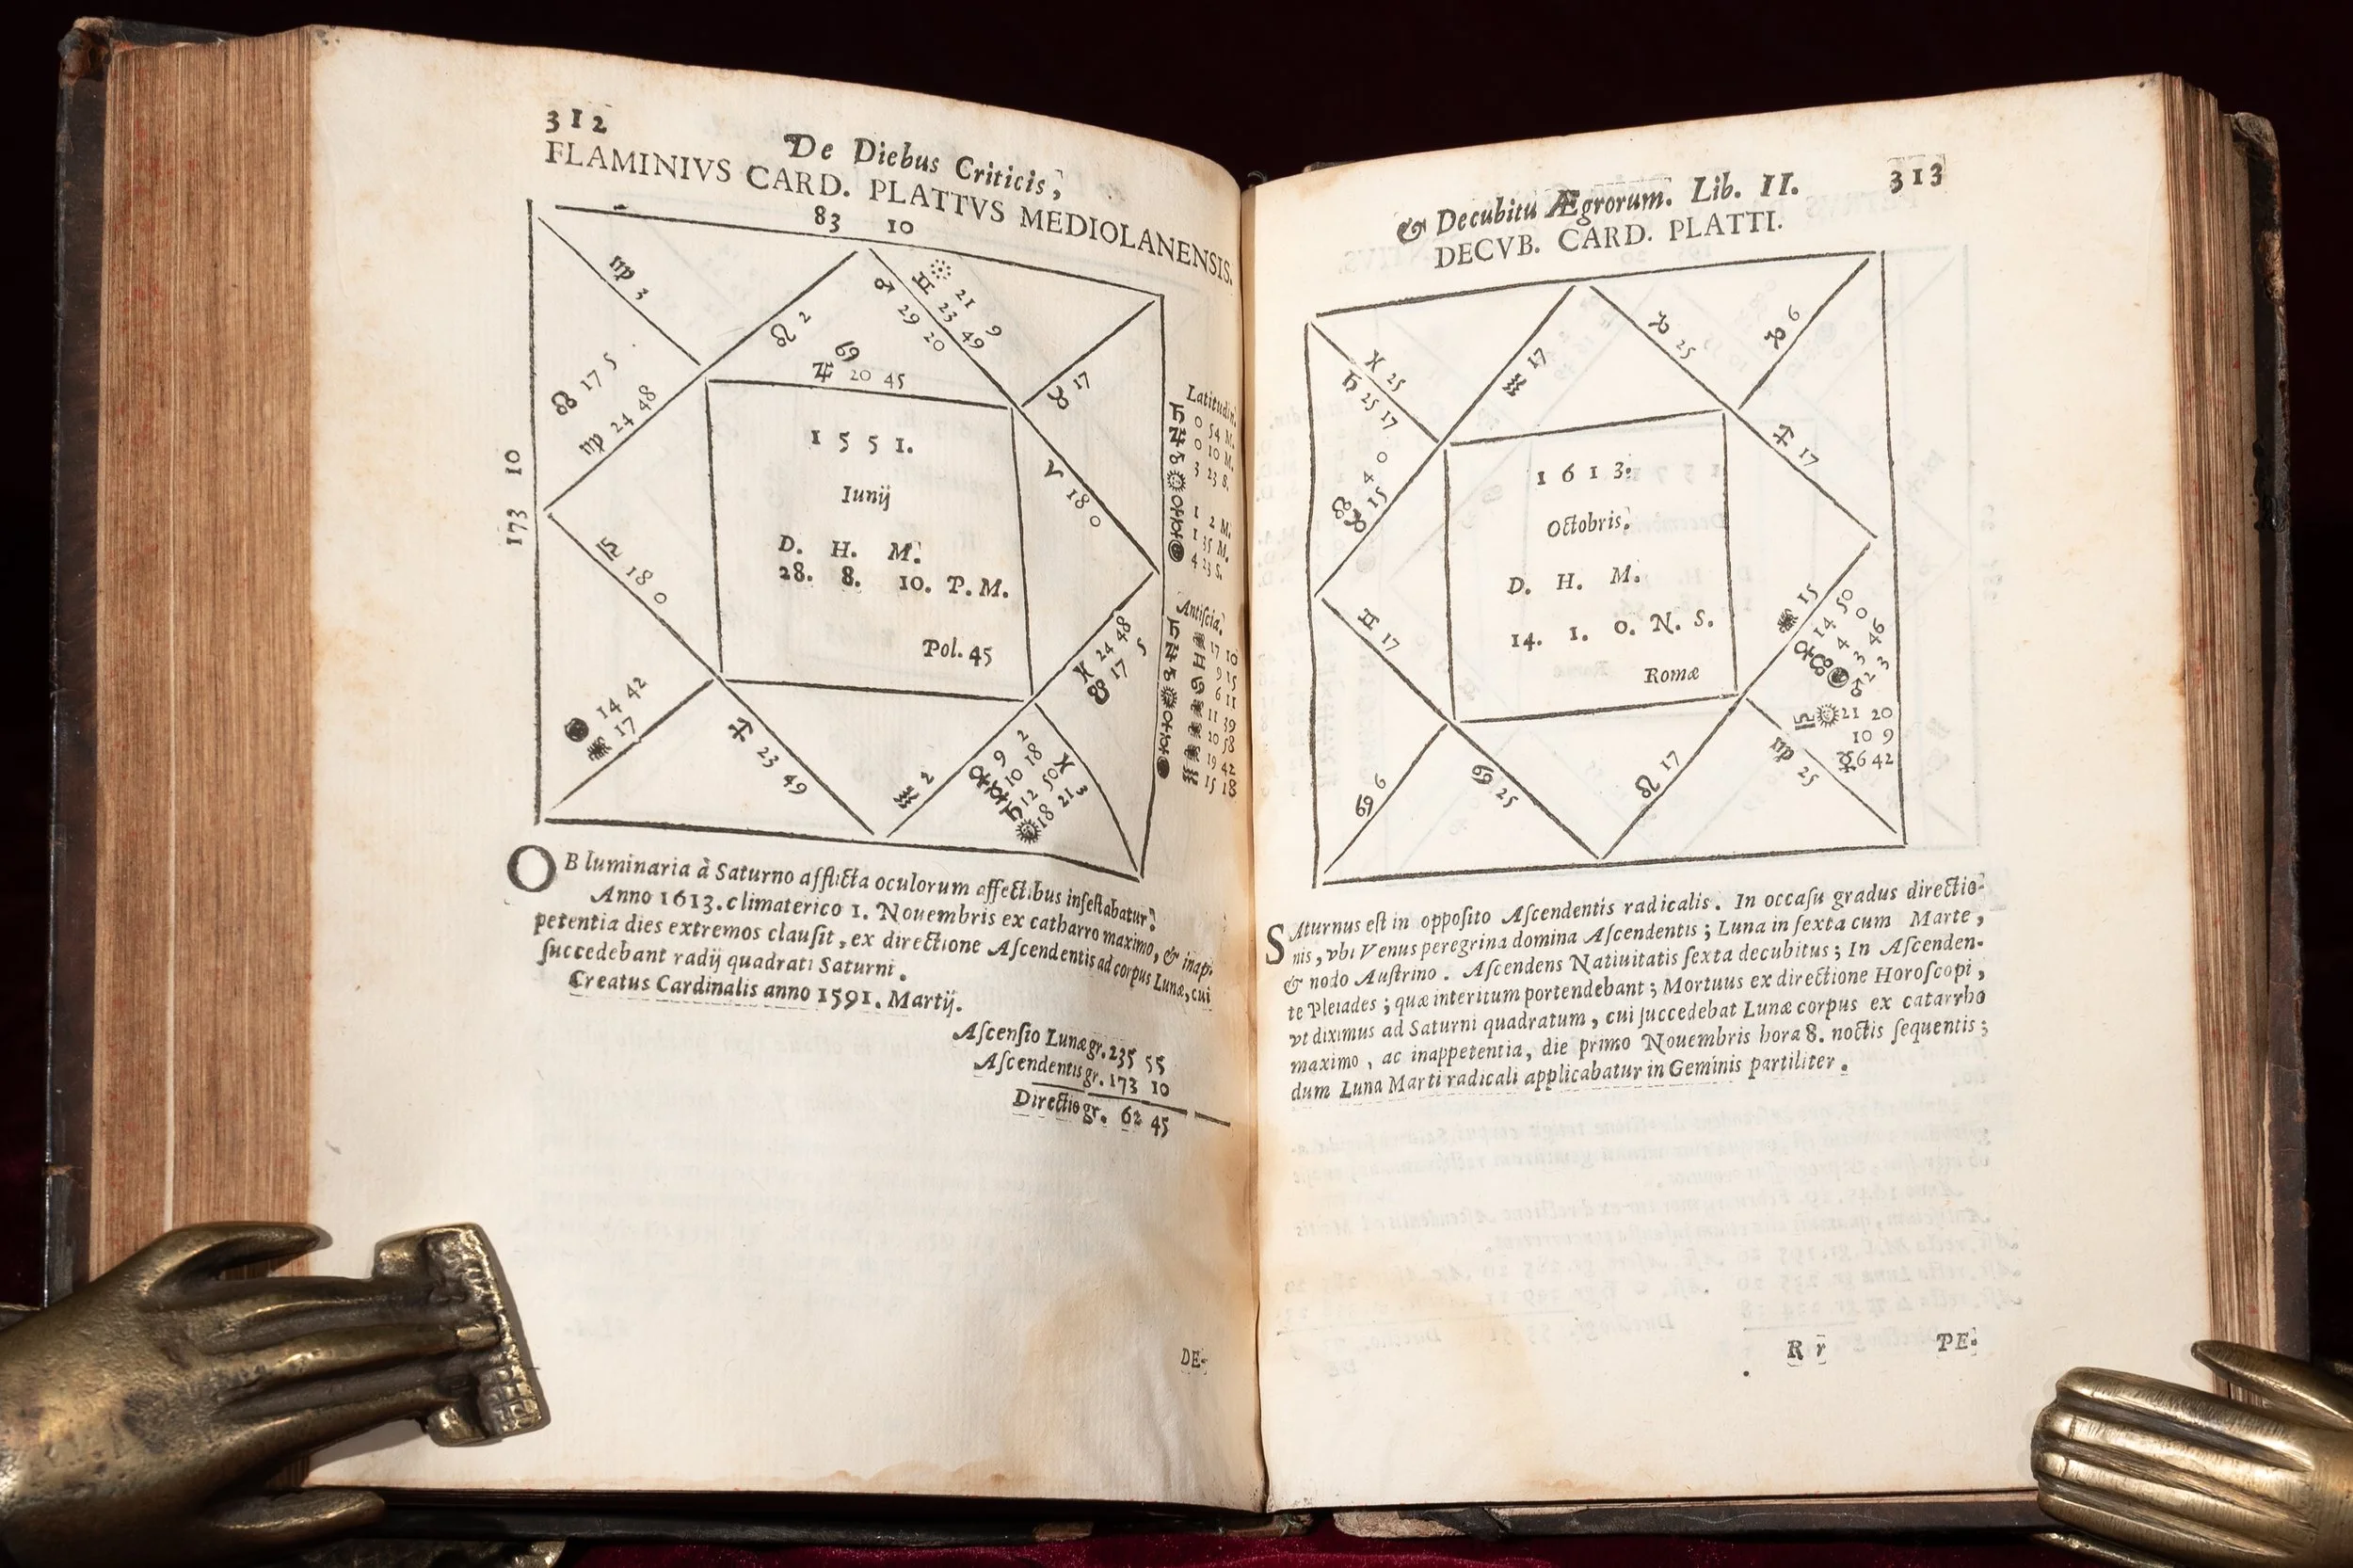 312
De Diebus Criticis,
FLAMINIVS CARD. PLATTVS MEDIOLANENSIS.
83 10
♍ 3
♌ 2
♊ 21 9
23 49
♂ 29 20
♋
♃ 20 45
♉ 17
☊ 17 5
♍ 24 48
173 10
♈ 18 0
1551.
Iunij
D. H. M.
28. 8. 10. P. M.
Pol. 45
♎ 18 0
14 42
♏ 17
♐ 23 49
♒ 2
♓ 24 48
☋ 17 5
♀ 9 2
☿ 10 18
♄ 12 50
18 21
♓ 3
Latitudin.
♄ 0 54 M.
♃ 0 10 M.
♂ 3 23 S.
☉
♀ 1 2 M.
☿ 1 35 M.
4 23 S.
Antiſcia.
♄ ♏ 17 10
♃ ♊ 9 15
♂ ♋ 6 11
☉ ♏ 11 39
♀ ♏ 20 58
☿ ♏ 19 42
♒ 15 18
OB luminaria à Saturno afflicta oculorum affectibus infeſtabatur.
Anno 1613. climaterico 1. Nouembris ex catharro maximo, & inap-
petentia dies extremos clauſit, ex directione Aſcendentis ad corpus Lunæ, cui
ſuccedebant radij quadrati Saturni.
Creatus Cardinalis anno 1591. Martij.
Aſcenſio Lunæ gr. 235 55
Aſcendentis gr. 173 10
Directio gr. 62 45
DE-
& Decubitu Ægrorum. Lib. II. 313
DECVB. CARD. PLATTI.
♓ 25
♄ 25 17
♒ 17
♑ 25
♑ 6
♐ 17
☊ 4 0
♉ 15
1613.
Octobris.
D. H. M.
14. 1. 0. N. S.
Romæ
♊ 17
♏ 15
♀ 14 50
☋ 4 0
3 46
♂ 2 3
♎ ☉ 21 20
10 9
☿ 6 42
♍ 25
♋ 6
♋ 25
♌ 17
SAturnus eſt in oppoſito Aſcendentis radicalis. In occaſu gradus directio-
nis, vbi Venus peregrina domina Aſcendentis; Luna in ſexta cum Marte,
& nodo Auſtrino. Aſcendens Natiuitatis ſexta decubitus; In Aſcenden-
te Pleiades; quæ interitum portendebant; Mortuus ex directione Horoſcopi,
vt diximus ad Saturni quadratum, cui ſuccedebat Lunæ corpus ex catarrho
maximo, ac inappetentia, die primo Nouembris hora 8. noctis ſequentis;
dum Luna Marti radicali applicabatur in Geminis partiliter.
R r PE-